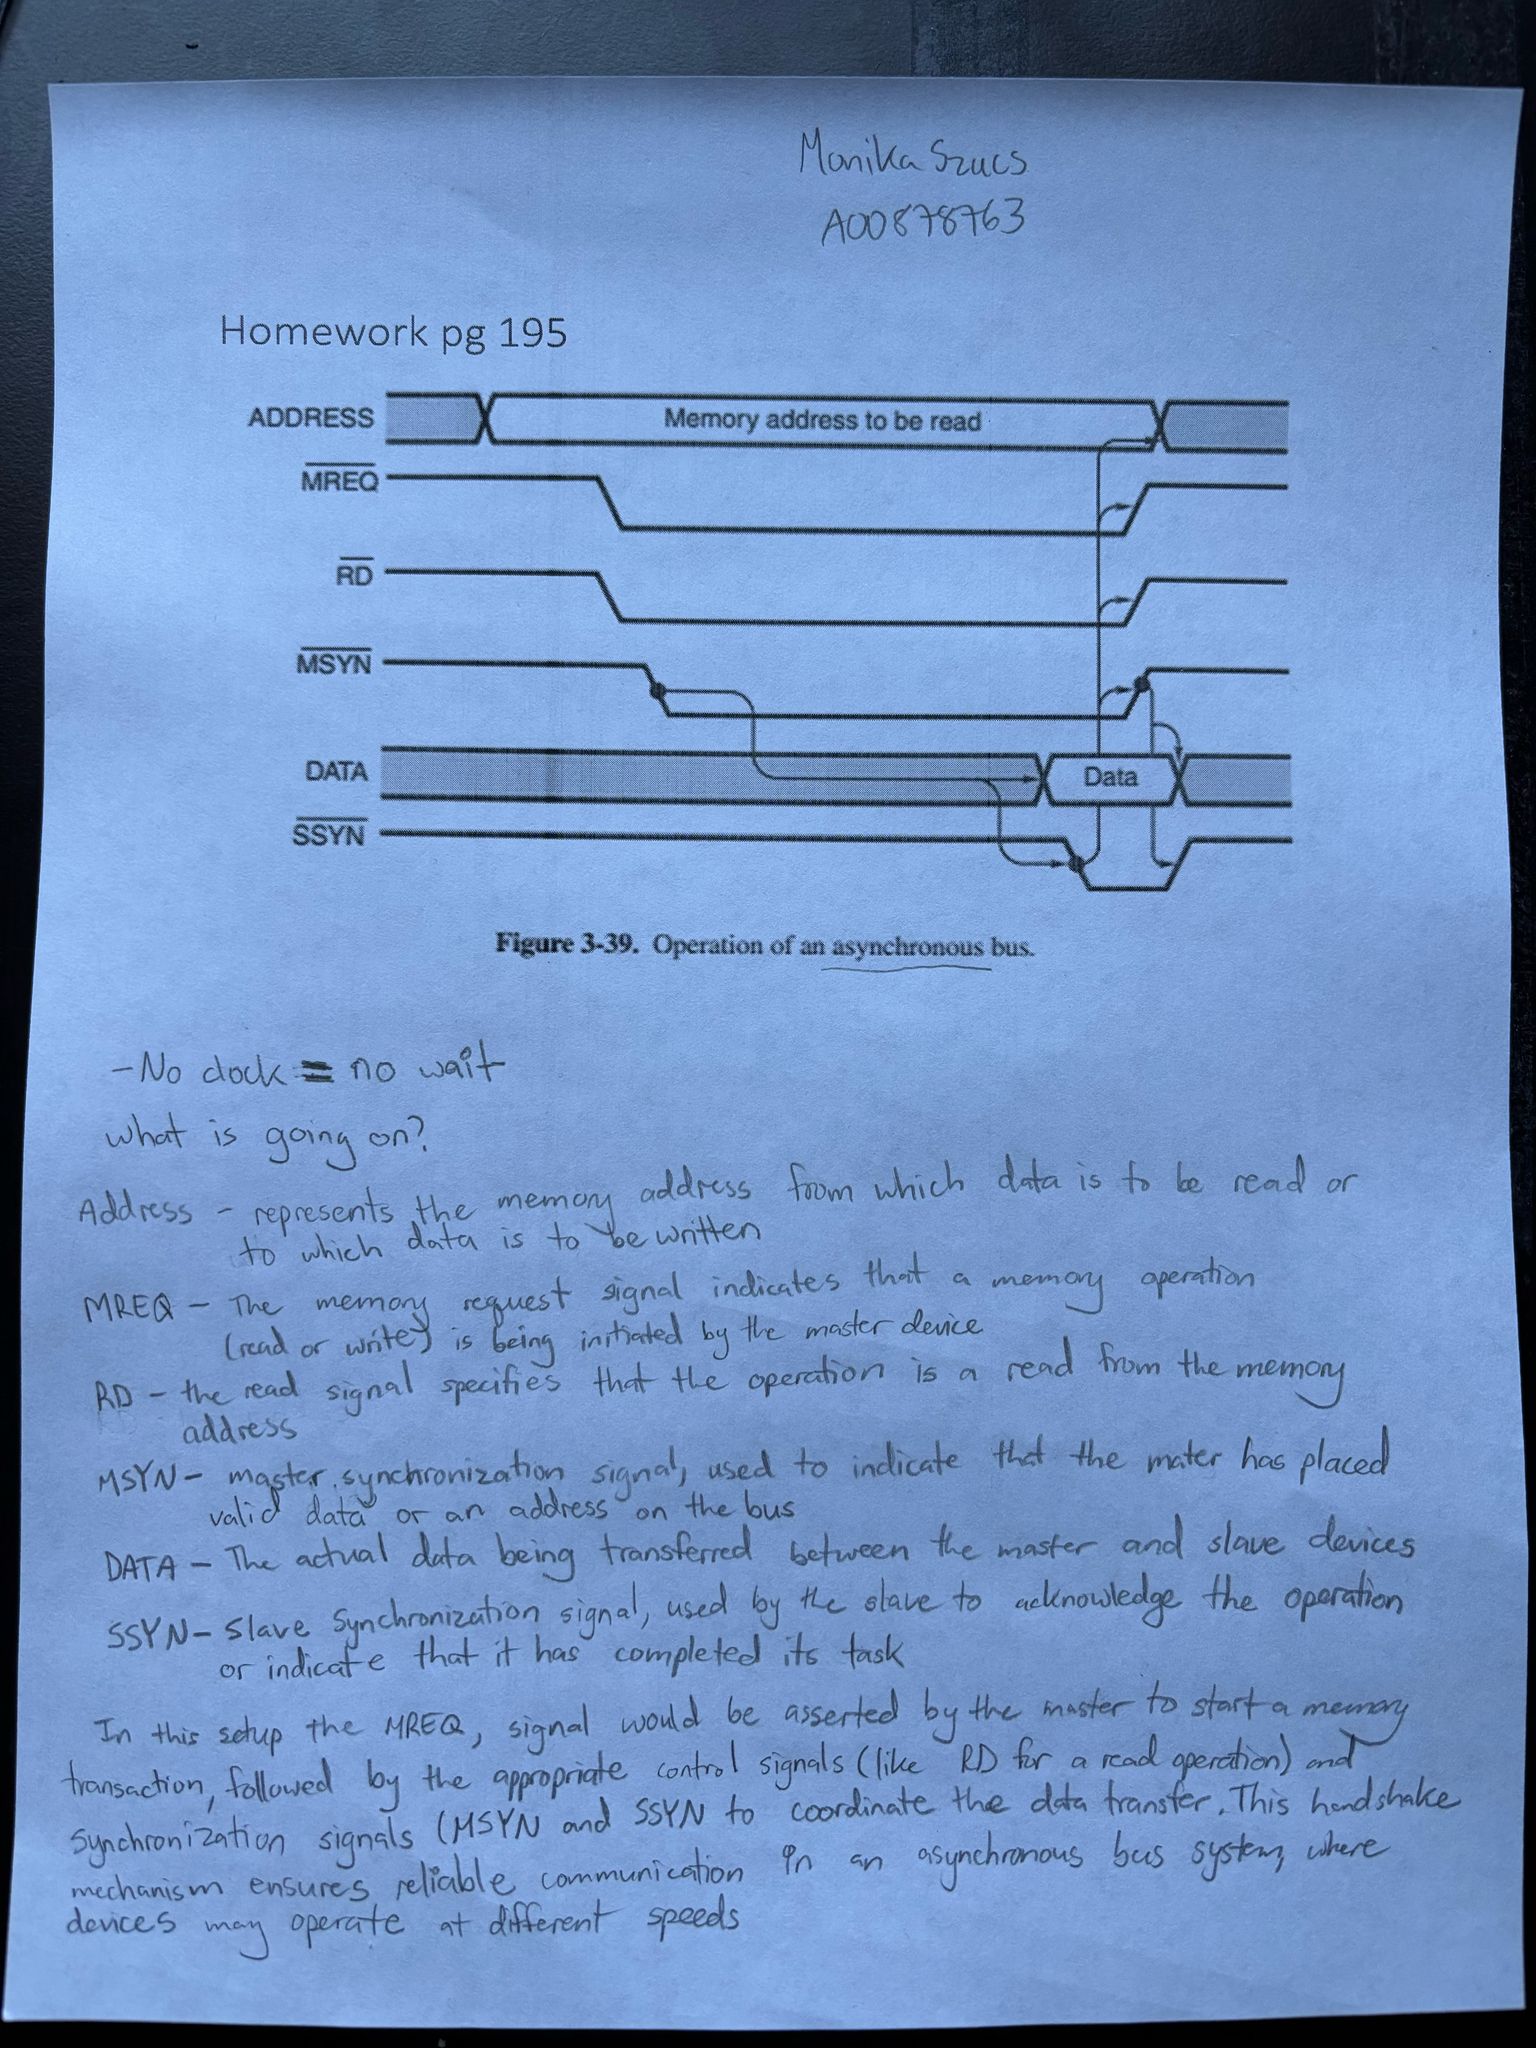 Monika Szucs
A00878763
Homework pg 195
ADDRESS
Memory address to be read
MREQ
RD
MSYN
DATA
Data
SSYN
Figure 3-39. Operation of an asynchronous bus.
- No clock = no wait
what is going on?
Address - represents the memory address from which data is to be read or
to which data is to be written
MREQ - The memory request signal indicates that a memory operation
(read or write) is being initiated by the master device
RD - the read signal specifies that the operation is a read from the memory
address
MSYN - master synchronization signal, used to indicate that the mater has placed
valid data or an address on the bus
DATA - The actual data being transferred between the master and slave devices
SSYN - Slave Synchronization signal, used by the slave to acknowledge the operation
or indicate that it has completed its task
In this setup the MREQ, signal would be asserted by the master to start a memory
transaction, followed by the appropriate control signals (like RD for a read operation) and
synchronization signals (MSYN and SSYN to coordinate the data transfer. This handshake
mechanism ensures reliable communication in an asynchronous bus system, where
devices may operate at different speeds